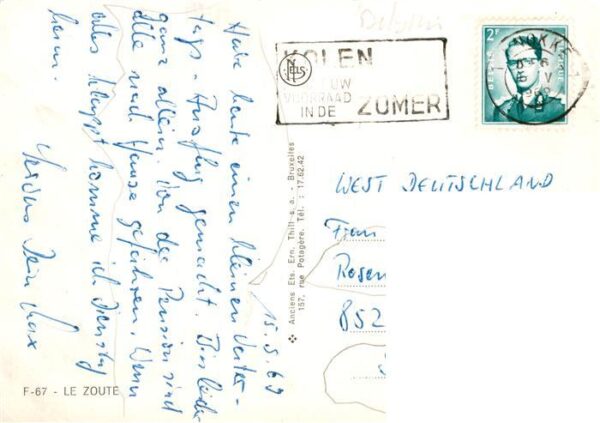 Belgien
KOLEN
UW
VOORRAAD
IN DE ZOMER
KNOKKE 1
2F
BELGIE
15.5.69
Habe heute einen kleinen Wester-
tags-Ausflug gemacht. Bin leider
ganz allein. Von der Pension sind
alle nach Hause gefahren. Wenn
alles klappt komme ich Dienstag
heim.
Dein
F-67 - LE ZOUTE
Anciens Ets. Ern. Thill s.a. - Bruxelles
157, rue Potagère. Tél. : 17.62.42
WEST DEUTSCHLAND
Frau
Rosen
852